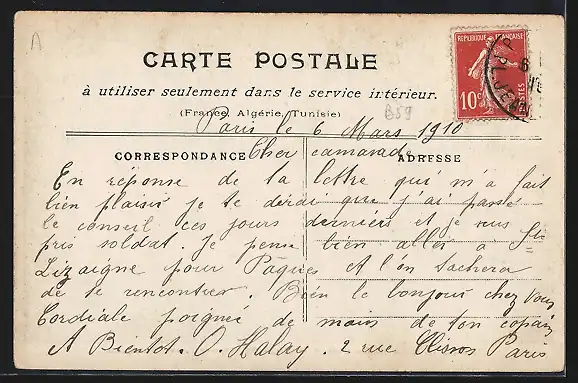 A
CARTE POSTALE
à utiliser seulement dans le service intérieur.
(France, Algérie, Tunisie)
REPUBLIQUE FRANÇAISE
10c
POSTES
B59
Paris le 6 Mars 1910
CORRESPONDANCE
ADRESSE
Cher camarade
En réponse de ta lettre qui m'a fait
bien plaisir je te dirai que j'ai passé
le conseil ces jours derniers et je suis
pris soldat. Je pense bien aller à Ste
Lizaigne pour Pâques et l'on tachera
de te rencontrer. Bien le bonjour chez vous
Cordiale poignée de main de ton copain
A Bientot. O. Halay. 2 rue Paris